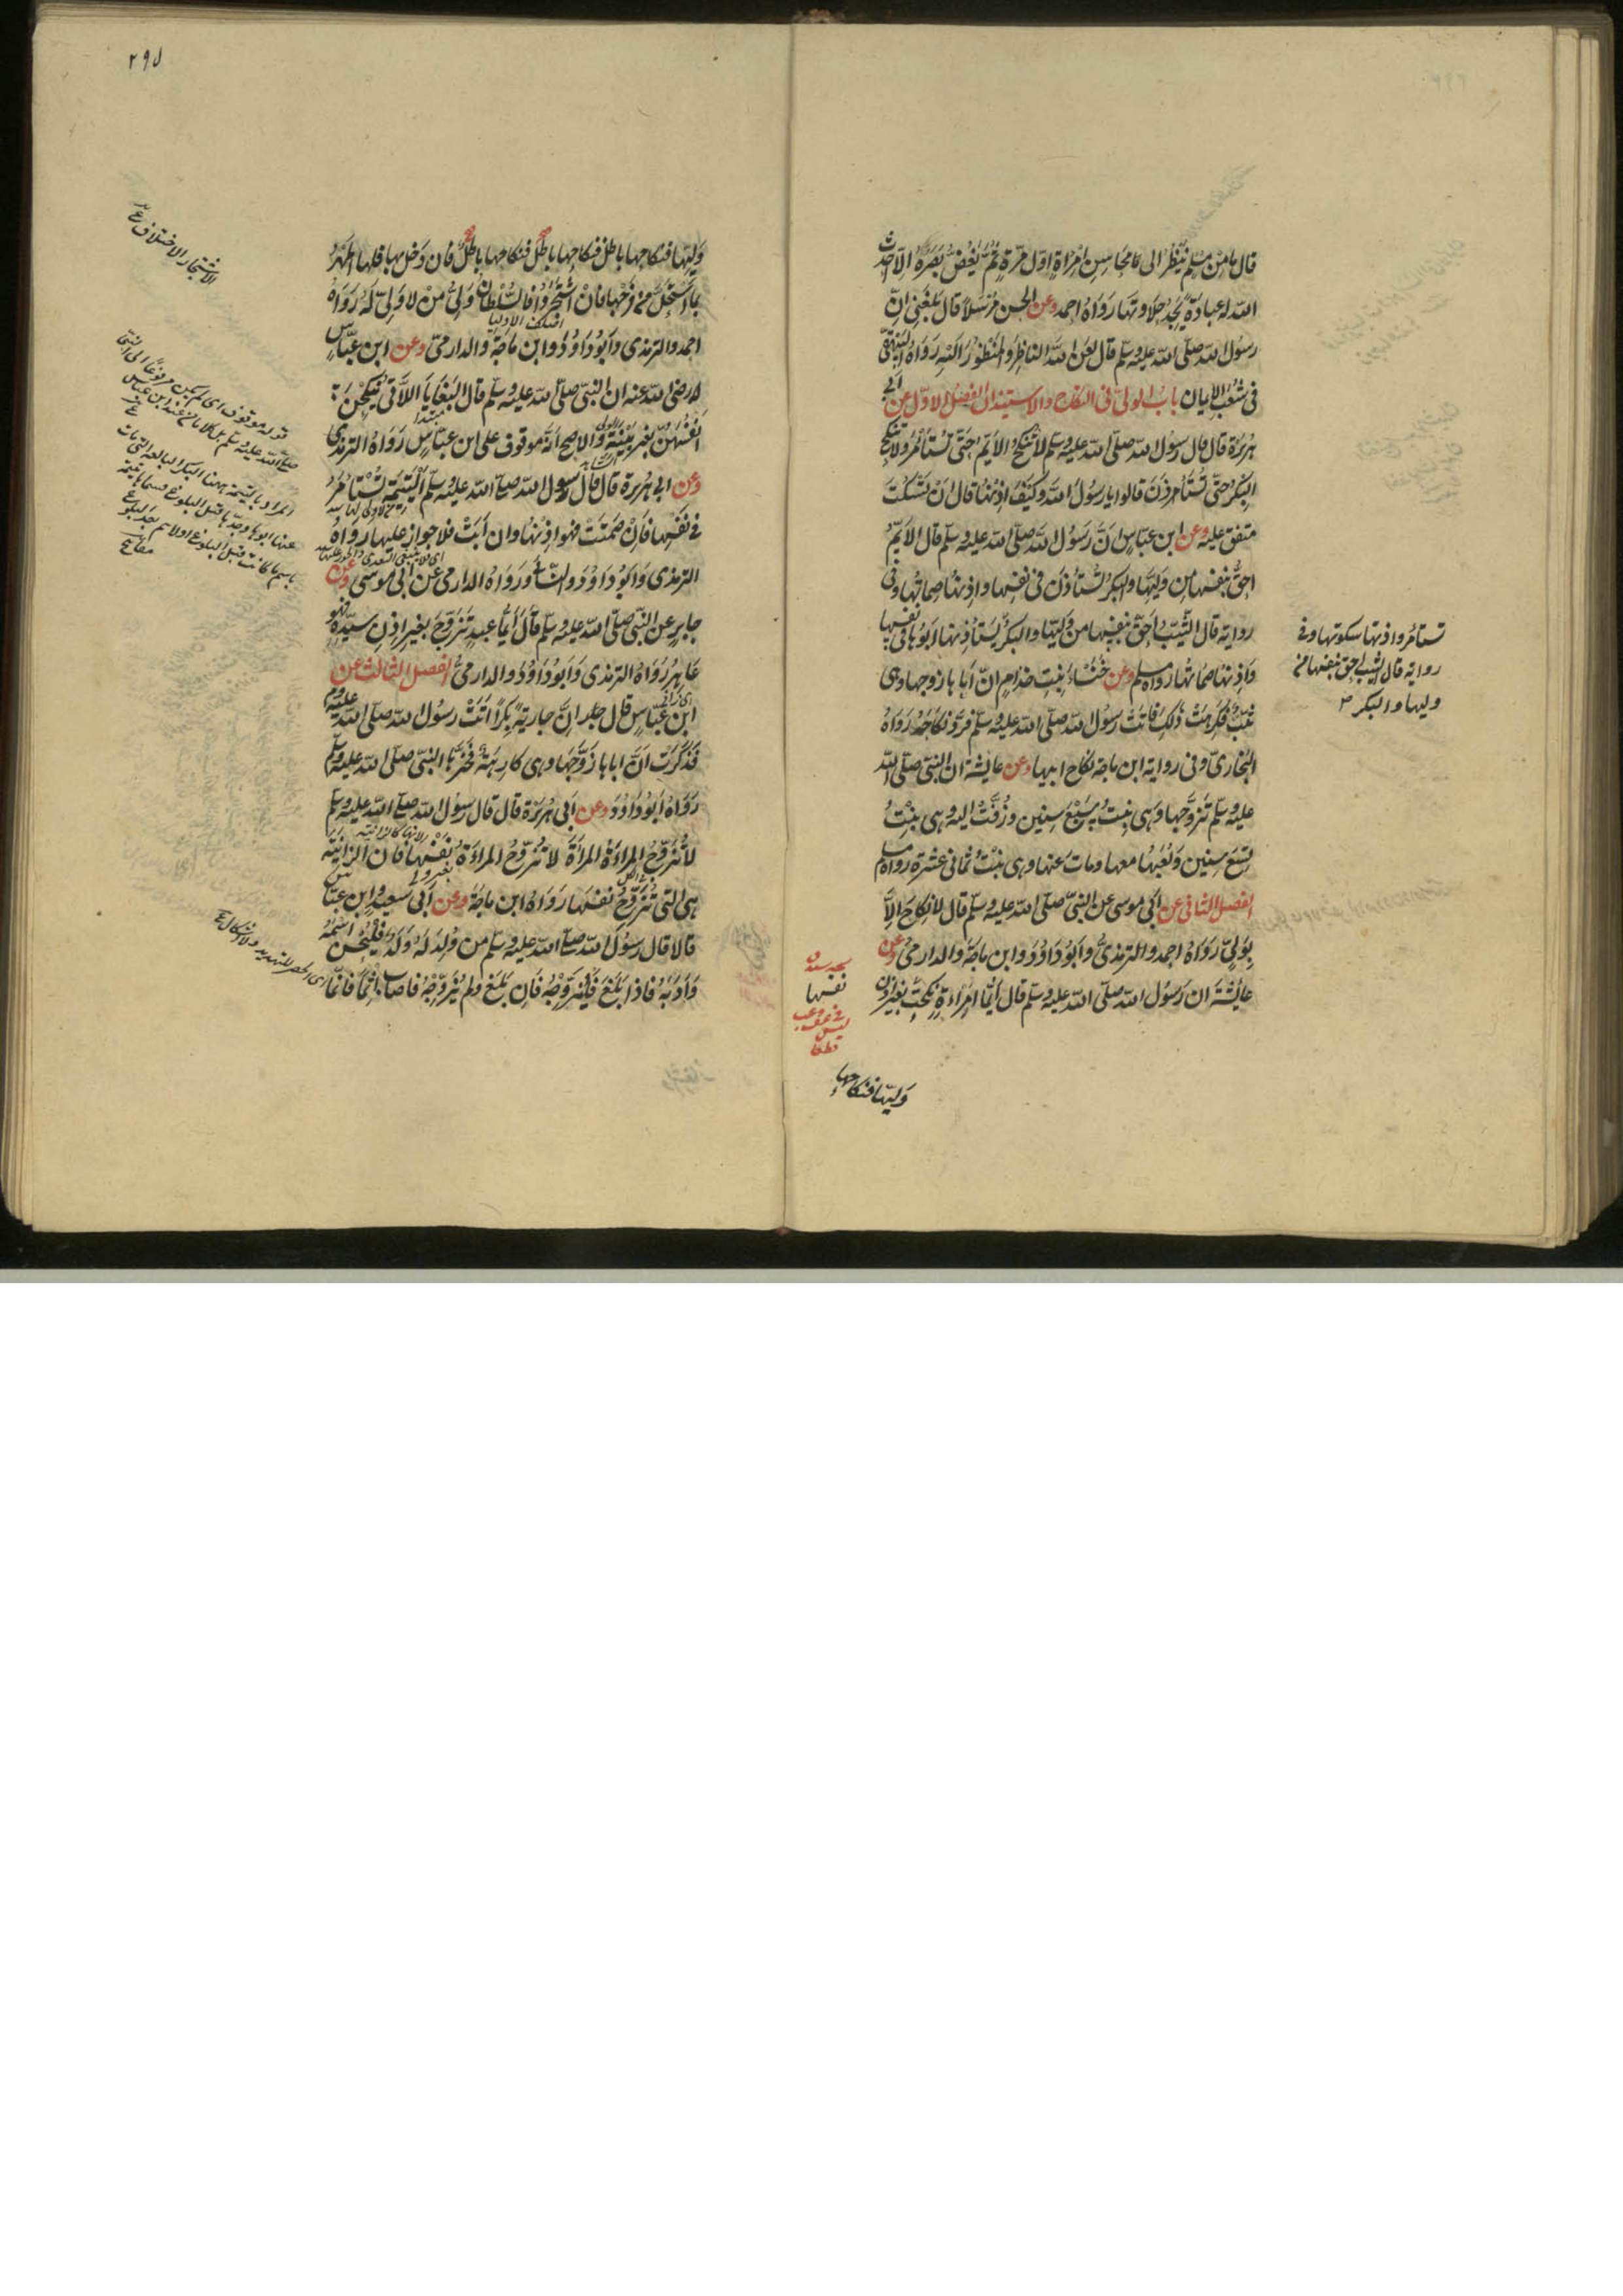 قال ما من مسلم ينظر الى محاسن امراة اول مرة ثم يغض بصره الا احدث
الله له عبادة يجد حلاوتها رواه احمد وعن الحسن مرسلا قال بلغنى ان
رسول الله صلى الله عليه وسلم قال لعن الله الناظر والمنظور اليه رواه البيهقى
فى شعب الايمان باب الولى فى النكاح والاستيذان الفصل الاول عن ابى
هريرة قال قال رسول الله صلى الله عليه وسلم لا تنكح الايم حتى تستامر ولا تنكح
البكر حتى تستأذن قالوا يا رسول الله وكيف اذنها قال ان تسكت
متفق عليه وعن ابن عباس ان رسول الله صلى الله عليه وسلم قال الايم
احق بنفسها من وليها والبكر تستأذن فى نفسها واذنها صماتها وفى
رواية قال الثيب احق بنفسها من وليها والبكر يستأذنها ابوها فى نفسها
واذنها صماتها رواه مسلم وعن خنساء بنت خذام ان اباها زوجها وهى
ثيب فكرهت ذلك فاتت رسول الله صلى الله عليه وسلم فرد نكاحه رواه
البخارى وفى رواية ابن ماجة نكاح ابيها وعن عايشة ان النبى صلى الله
عليه وسلم تزوجها وهى بنت سبع سنين وزفت اليه وهى بنت
تسع سنين ولعبها معها ومات عنها وهى بنت ثمانى عشرة رواه مسلم
الفصل الثانى عن ابى موسى عن النبى صلى الله عليه وسلم قال لا نكاح الا
بولى رواه احمد والترمذى وابو داود وابن ماجة والدارمى وعن
عايشة ان رسول الله صلى الله عليه وسلم قال ايما امراءة نكحت بغير اذن
وليها فنكاحها
تستأمر واذنها سكوتها وفى
رواية قال الثيب احق بنفسها من
وليها والبكر
نفسها
٢٩٥
وليها فنكاحها باطل فنكاحها باطل فنكاحها باطل فان دخل بها فلها المهر
بما استحل من فرجها فان اشتجروا فالسلطان ولى من لا ولى له رواه
احمد والترمذى وابو داود وابن ماجة والدارمى وعن ابن عباس
رضى الله عنه ان النبى صلى الله عليه وسلم قال البغايا اللاتى ينكحن
انفسهن بغير بينة والاصح انه موقوف على ابن عباس رواه الترمذى
وعن ابى هريرة قال قال رسول الله صلى الله عليه وسلم اليتيمة تستامر
فى نفسها فان صمتت فهو اذنها وان ابت فلا جواز عليها رواه
الترمذى وابو داود والنسائى ورواه الدارمى عن ابى موسى وعن
جابر عن النبى صلى الله عليه وسلم قال ايما عبد تزوج بغير اذن سيده فهو
عاهر رواه الترمذى وابو داود والدارمى الفصل الثالث عن
ابن عباس قال ان جارية بكرا اتت رسول الله صلى الله عليه وسلم
فذكرت ان اباها زوجها وهى كارهة فخيرها النبى صلى الله عليه وسلم
رواه ابو داود وعن ابى هريرة قال قال رسول الله صلى الله عليه وسلم
لا تزوج المراءة المرأة لا تزوج المراءة نفسها فان الزانية
هى التى تزوج نفسها رواه ابن ماجة وعن ابى سعيد وابن عباس
قالا قال رسول الله صلى الله عليه وسلم من ولد له ولد فليحسن اسمه
وادبه فاذا بلغ فليزوجه فان بلغ ولم يزوجه فاصاب اثما فانما
الاشتجار الاختلاف
قوله موقوف اى لم يكن مرفوعا الى النبى
المراد باليتيمة ههنا البكر البالغة التى مات
عنها ابوها وجدها قبل البلوغ